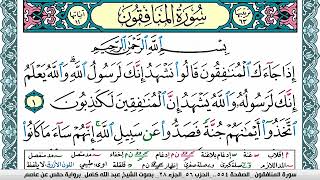 سورة المنافقون
بِسْمِ ٱللَّهِ ٱلرَّحْمَٰنِ ٱلرَّحِيمِ
إِذَا جَآءَكَ ٱلْمُنَٰفِقُونَ قَالُوا۟ نَشْهَدُ إِنَّكَ لَرَسُولُ ٱللَّهِ وَٱللَّهُ يَعْلَمُ
إِنَّكَ لَرَسُولُهُۥ وَٱللَّهُ يَشْهَدُ إِنَّ ٱلْمُنَٰفِقِينَ لَكَٰذِبُونَ ١
ٱتَّخَذُوٓا۟ أَيْمَٰنَهُمْ جُنَّةً فَصَدُّوا۟ عَن سَبِيلِ ٱللَّهِ إِنَّهُمْ سَآءَ مَا كَانُوا۟
سورة المنافقون الصفحة ٥٥٤ الحزب ٥٦ الجزء ٢٨ بصوت الشيخ عبد الله كامل برواية حفص عن عاصم